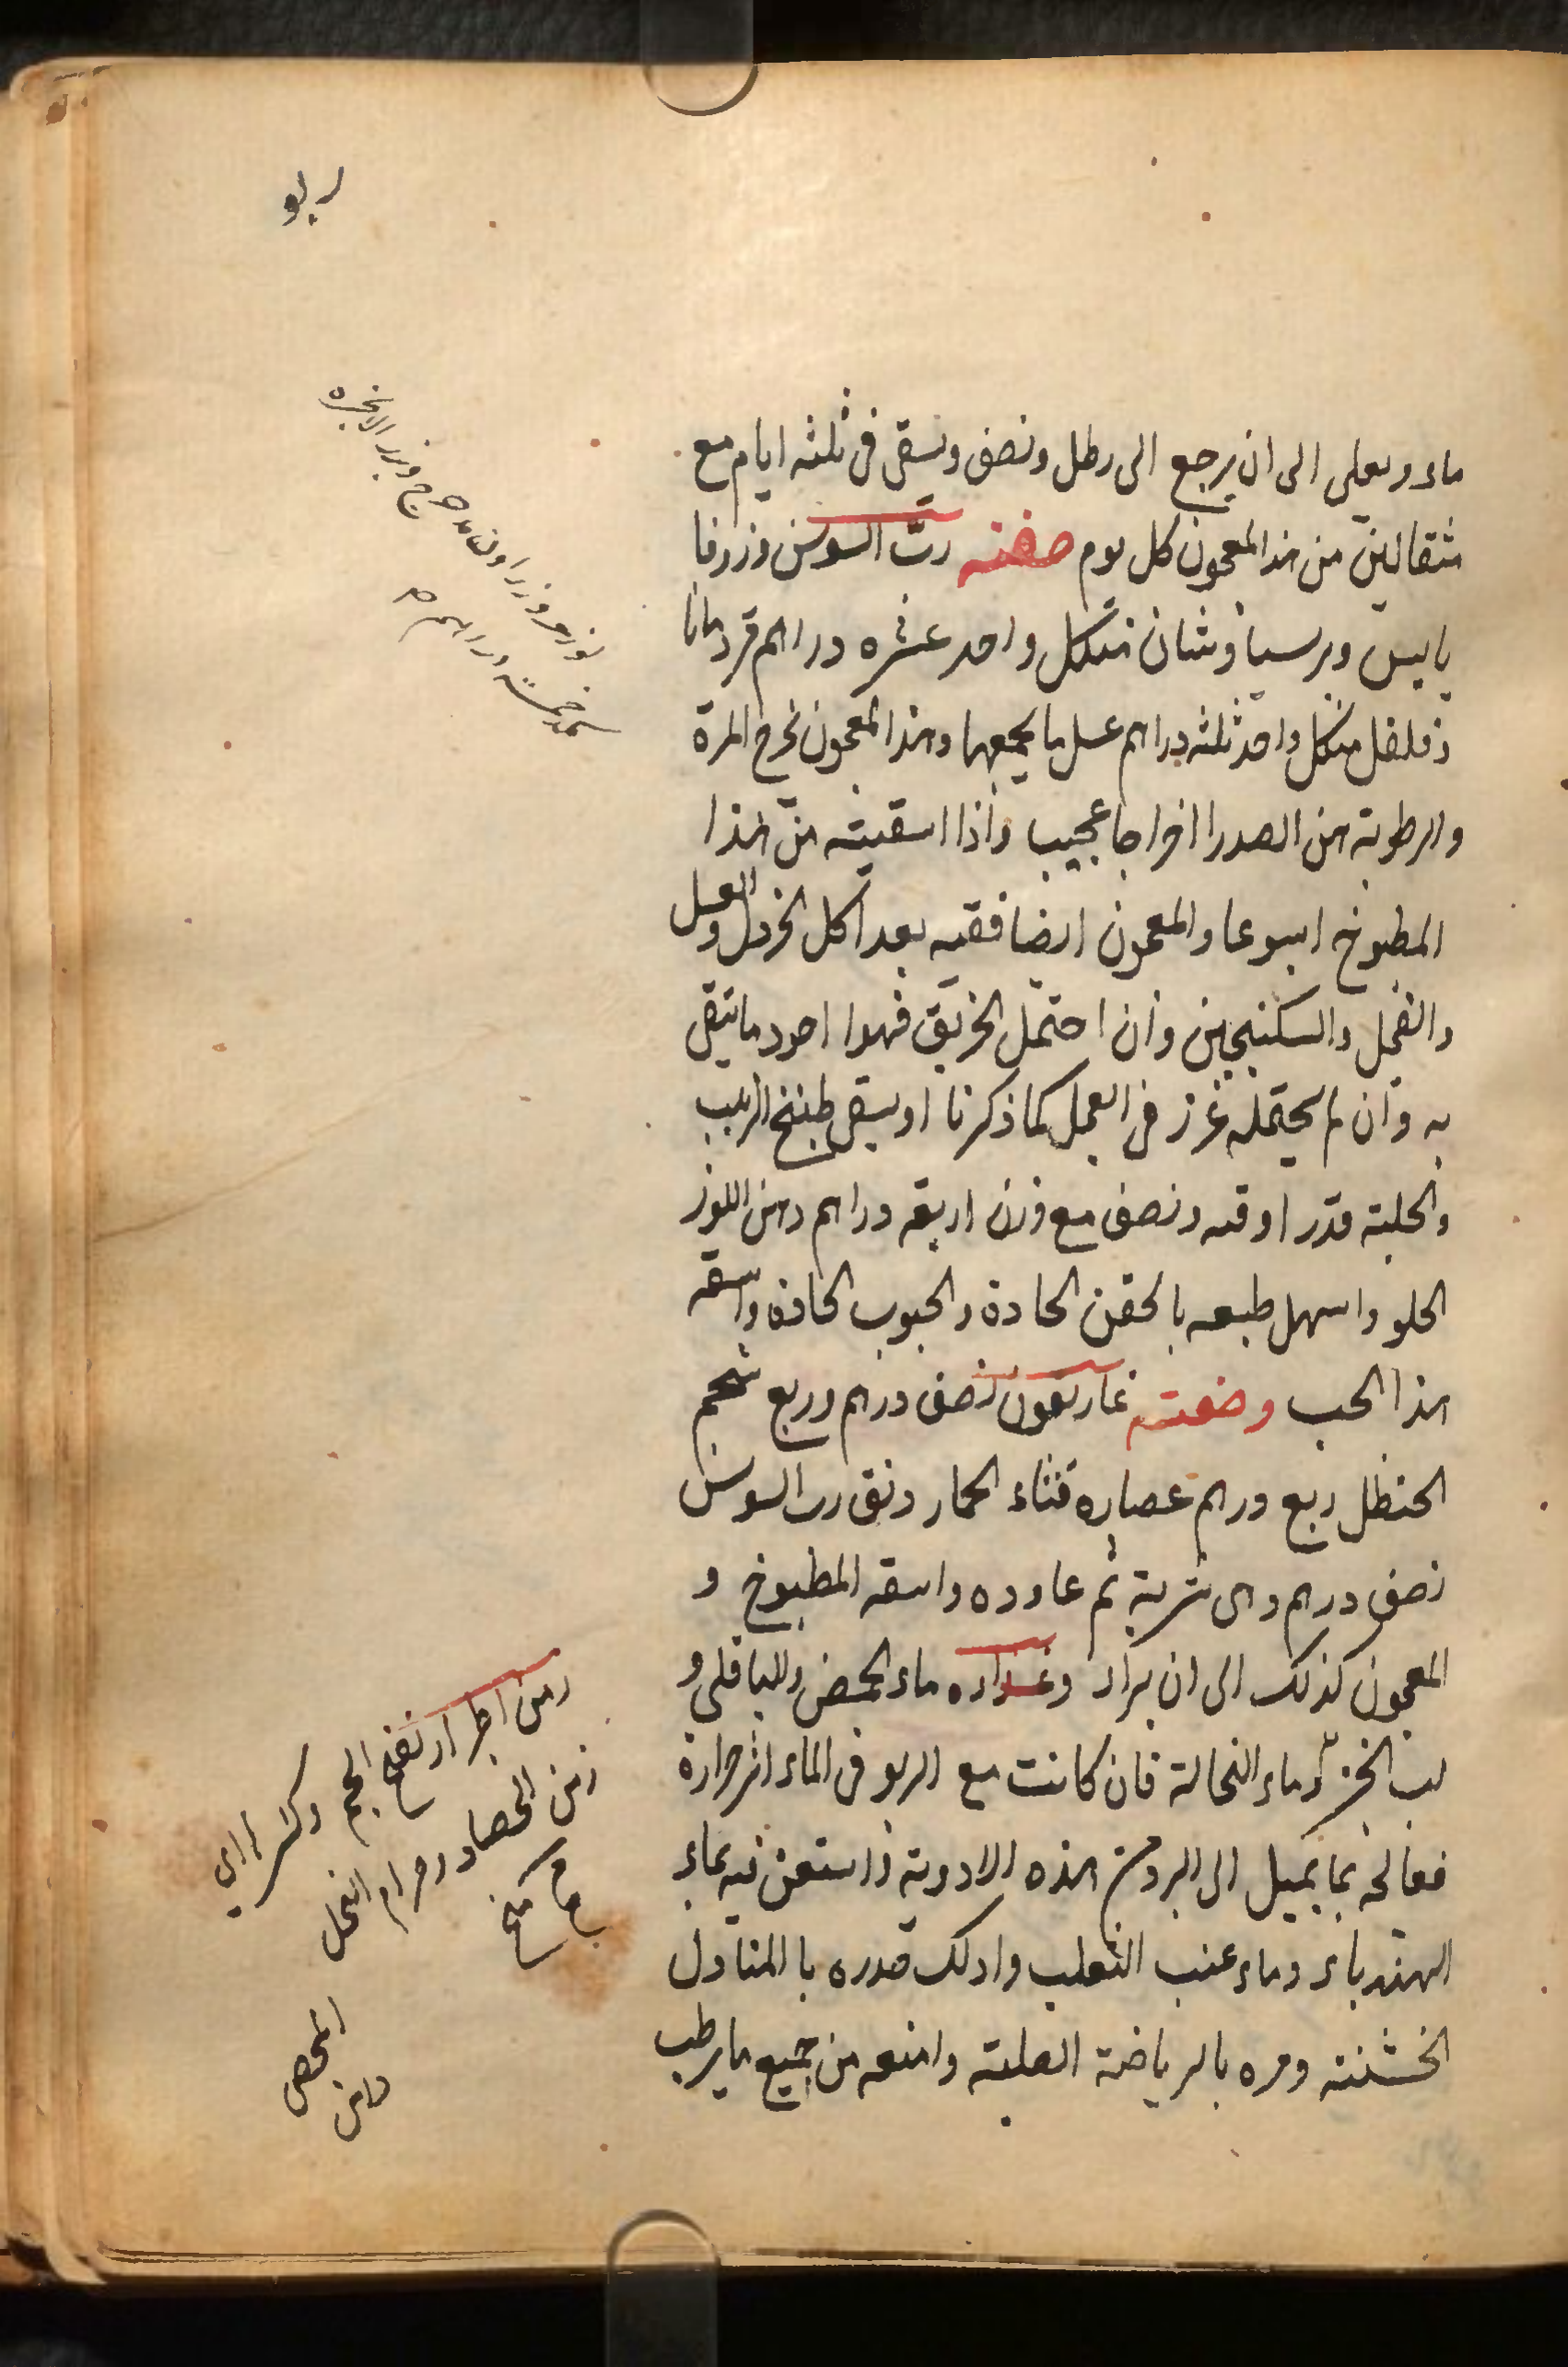 ربو
ماء ويعلى الى ان يرجع الى رطل ونصف ويسقى فى ثلثه ايام مع
مثقالين من هذا المعجون كل يوم صفته ربّ السوس وزوفا
يابس وبرسياوشان من كل واحد عشره دراهم قردمانا
وفلفل من كل واحد ثلثه دراهم عسل ما يجمعها وهذا المعجون يخرج المرة
والرطوبة من الصدر اخراجا عجيب واذا اسقيته من هذا
المطبوخ اسبوعا والمعجون ايضا فقيه بعد اكل الخردل والعسل
والفجل والسكنجبين وان احتمل الخربق فهوا اجود ما يتقى
به وان لم يحتمله غرز فى الفجل كما ذكرنا او يسقى طبيخ الزبيب
والحلبة قدر اوقيه ونصف مع وزن اربعه دراهم دهن اللوز
الحلو واسهل طبعه بالحقن الحادة والحبوب الحادة واسقه
هذا الحب وصفته غاريقون نصف درهم وربع شحم
الحنظل ربع درهم عصاره قثاء الحمار دنق رب السوس
نصف درهم وهى شربة ثم عاوده واسقه المطبوخ و
المعجون كذلك الى ان يراد وغذاره ماء الحمص والباقلى و
لب الخبز وماء النخالة فان كانت مع الربو فى الماء اثر حرارة
فعالجه بما يميل الى البرد من هذه الادوية واستعن فيه بماء
الهندباء وماء عنب الثعلب وادلك صدره با المناديل
الخشنة ومره بالرياضة الصلبة وامنعه من جميع ما يرطب
وبزر الانجره
خمسة دراهم